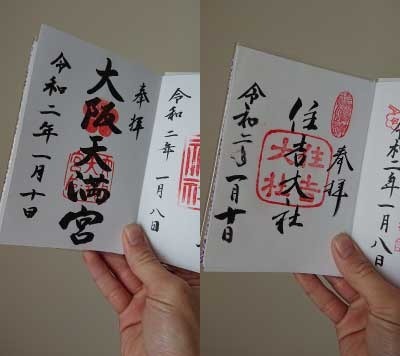 奉拝
大阪天満宮
令和二年一月十日
令和二年
一月八日
奉拝
住吉大社
住吉
大社
令和二年一月十日
令和二年一月八日